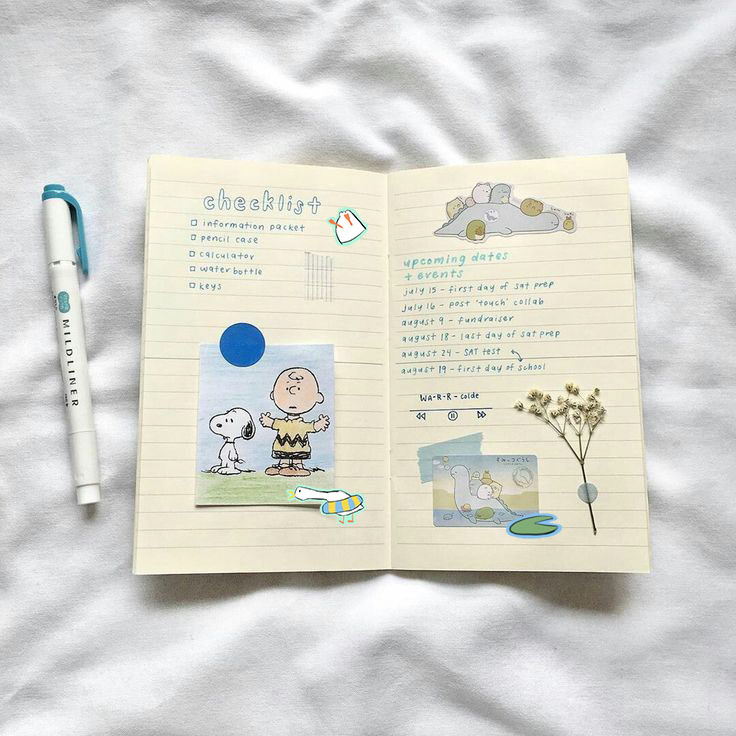 MILDLINER
checklist
information packet
pencil case
calculator
water bottle
keys
upcoming dates
+ events
july 15 - first day of sat prep
july 16 - post 'touch' collab
august 9 - fundraiser
august 18 - last day of sat prep
august 24 - SAT test
august 19 - first day of school
WA-R-R - colde